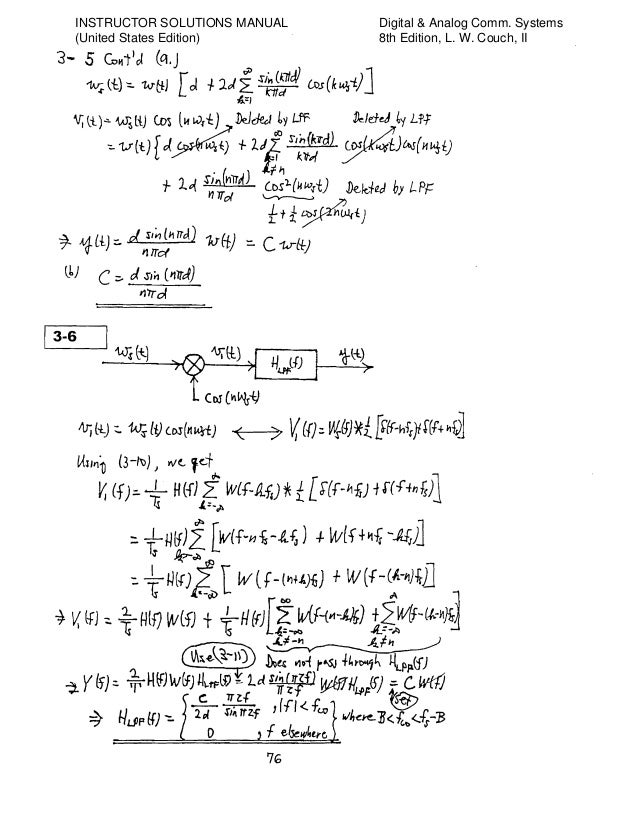 INSTRUCTOR SOLUTIONS MANUAL
(United States Edition)
Digital & Analog Comm. Systems
8th Edition, L. W. Couch, II
3-5 Cont'd (a.)
w_s(t) = w(t) [d + 2d Σ_{k=1}^{∞} sin(kπd)/kπd cos(kω_s t)]
v_1(t) = w_s(t) cos(nω_s t) Deleted by LPF Deleted by LPF
= w(t) {d cos(nω_s t) + 2d Σ_{k=1, k≠n}^{∞} sin(kπd)/kπd cos(kω_s t) cos(nω_s t)
+ 2d sin(nπd)/nπd cos²(nω_s t) Deleted by LPF
1/2 + 1/2 cos(2nω_s t)
⇒ y(t) = d sin(nπd)/nπd w(t) = C w(t)
(b) C = d sin(nπd)/nπd
3-6
w_s(t) v_1(t) H_LPF(f) y(t)
cos(nω_s t)
v_1(t) = w_s(t) cos(nω_s t) ⟷ V_1(f) = W_s(f) * 1/2 [δ(f-nf_s)+δ(f+nf_s)]
Using (3-10), we get
V_1(f) = 1/T_s H(f) Σ_{k=-∞}^{∞} W(f-kf_s) * 1/2 [δ(f-nf_s) + δ(f+nf_s)]
= 1/T_s H(f) Σ_{k=-∞}^{∞} [W(f-nf_s-kf_s) + W(f+nf_s-kf_s)]
= 1/T_s H(f) Σ_{k=-∞}^{∞} [W(f-(n+k)f_s) + W(f-(k-n)f_s)]
⇒ V_1(f) = 2/T_s H(f) W(f) + 1/T_s H(f) [Σ_{k=-∞, k≠-n}^{∞} W(f-(n-k)f_s) + Σ_{k=-∞, k≠n}^{∞} W(f-(k-n)f_s)]
Use (3-11) Does not pass through H_LPF(f)
⇒ Y(f) = 2/T H(f) W(f) H_LPF(f) = 2d sin(πτf)/πτf W(f) H_LPF(f) = C W(f)
set
⇒ H_LPF(f) = { C/2d πτf/sin πτf , |f| < f_co
0 , f elsewhere } where B < f_co < f_s - B
76